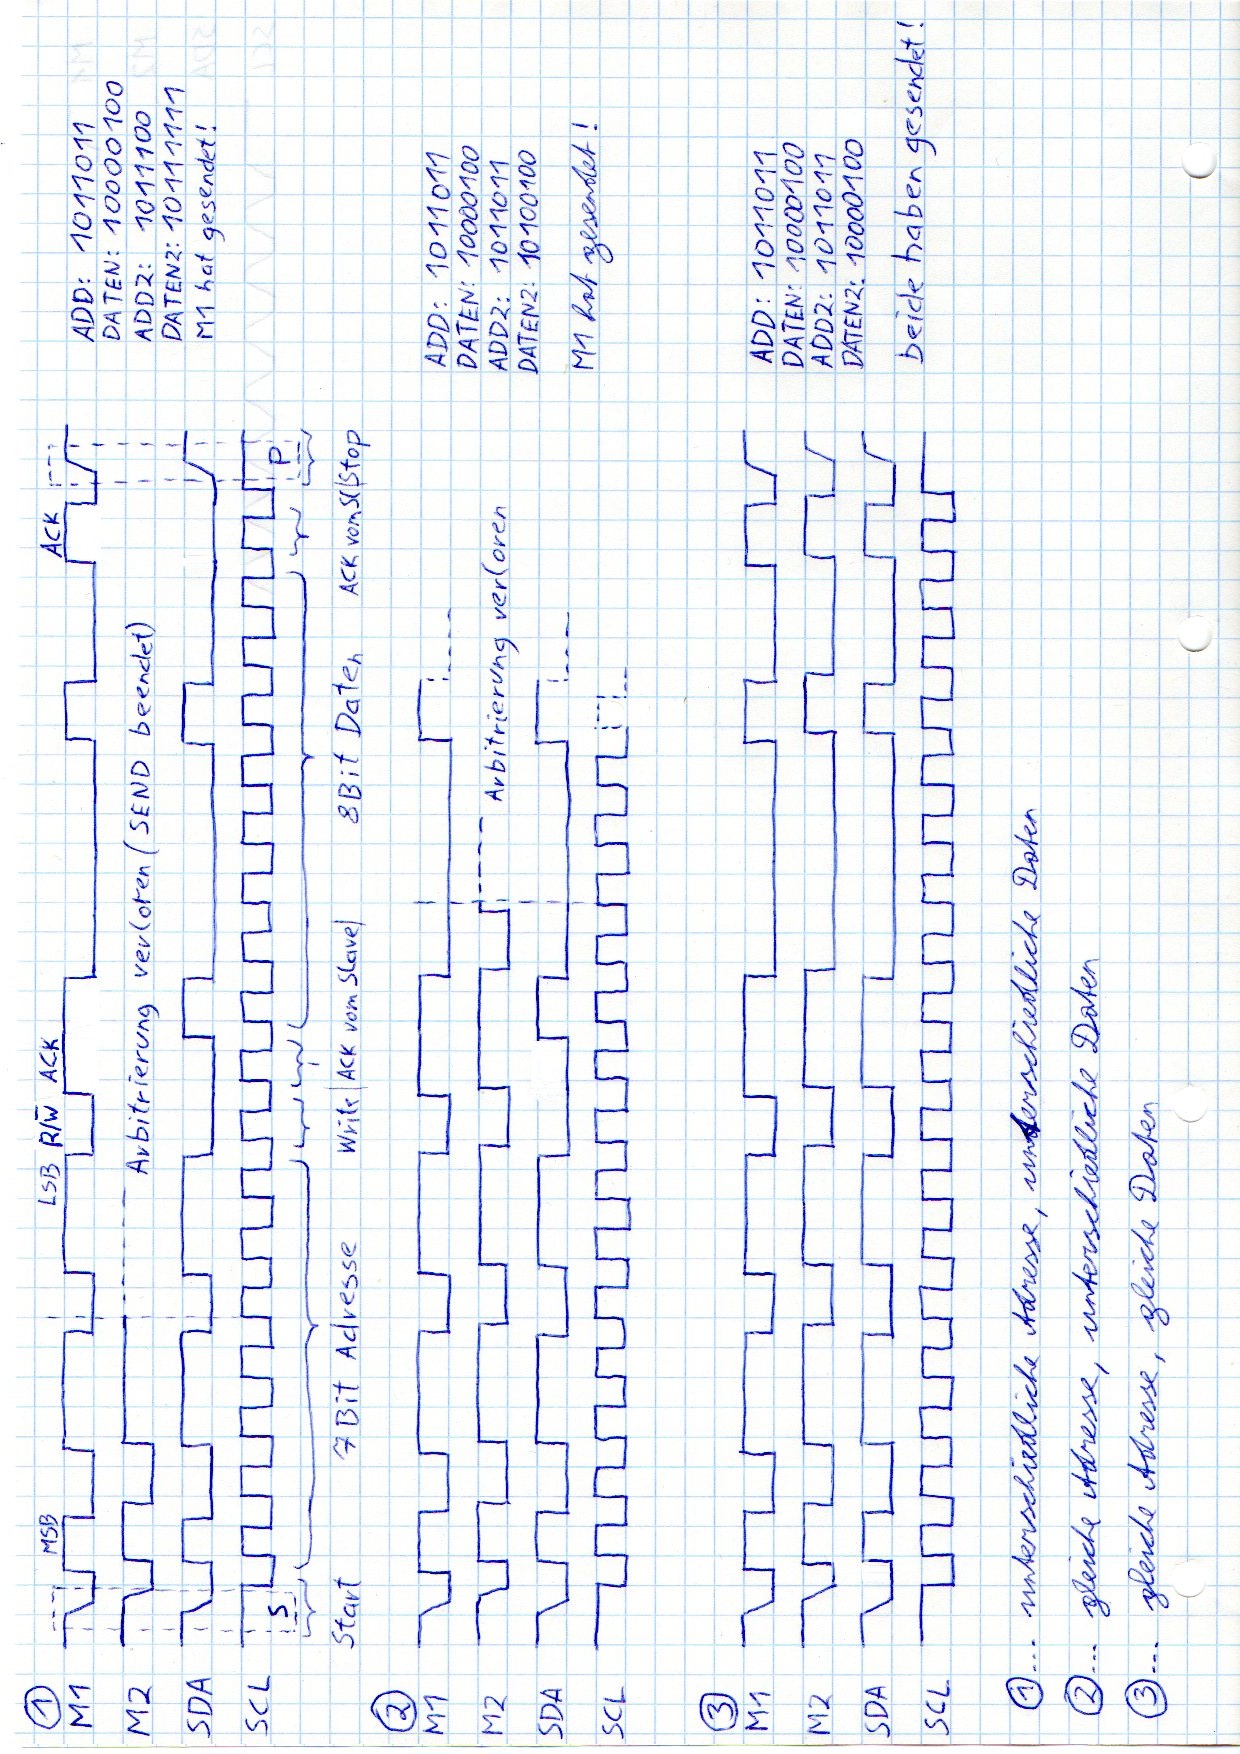 ①
LSB R/W̅ ACK
MSB
ACK
M1
M2
Arbitrierung verloren (SEND beendet)
SDA
SCL
S
P
Start
7 Bit Adresse
Write
ACK vom Slave
8 Bit Daten
ACK vom Sl
Stop
ADD: 1011011
DATEN: 10000100
ADD2: 1011100
DATEN2: 10111111
M1 hat gesendet!
②
M1
M2
Arbitrierung verloren
SDA
SCL
ADD: 1011011
DATEN: 10000100
ADD2: 1011011
DATEN2: 10100100
M1 hat gesendet!
③
M1
M2
SDA
SCL
ADD: 1011011
DATEN: 10000100
ADD2: 1011011
DATEN2: 10000100
beide haben gesendet!
①... unterschiedliche Adresse, unterschiedliche Daten
②... gleiche Adresse, unterschiedliche Daten
③... gleiche Adresse, gleiche Daten